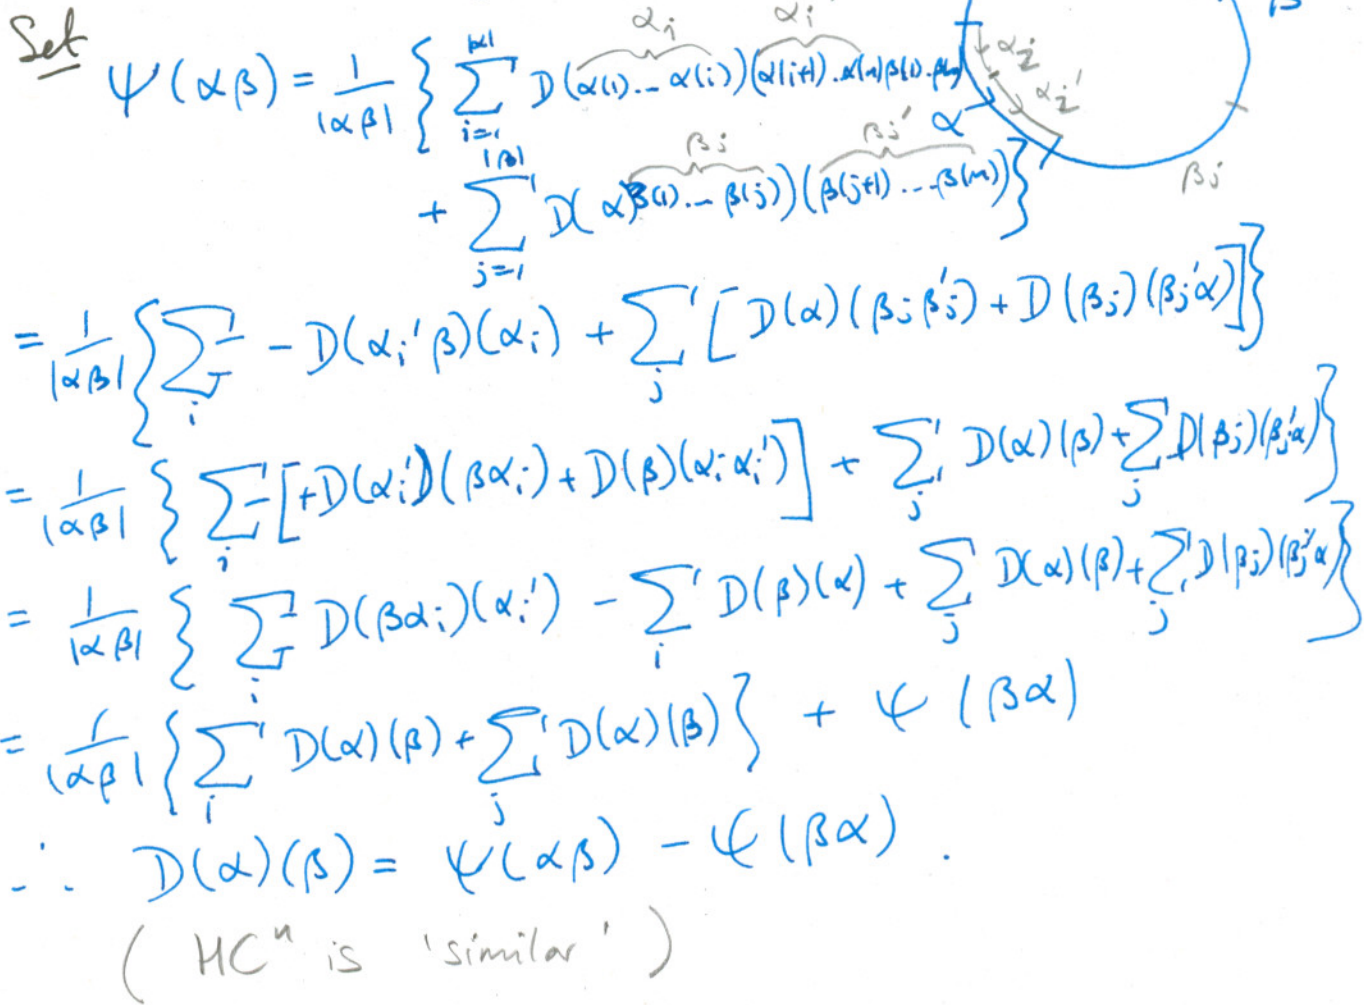 Set
α_i α_i
Ψ(αβ) = 1/|αβ| { ∑_{i=1}^{|α|} D(α(1)... α(i))(α(i+1)..α(n)β(1)..β(m)
β α_i α_i' α β_j
β_j β_j'
+ ∑_{j=1}^{|β|} D(α β(1)... β(j))(β(j+1)...β(m)) }
= 1/|αβ| { ∑_i - D(α_i'β)(α_i) + ∑_j [D(α)(β_jβ_j') + D(β_j)(β_j'α)] }
= 1/|αβ| { ∑_i - [+D(α_i')(βα_i) + D(β)(α_iα_i')] + ∑_j D(α)(β) + ∑_j D(β_j)(β_j'α) }
= 1/|αβ| { ∑_i D(βα_i)(α_i') - ∑_i D(β)(α) + ∑_j D(α)(β) + ∑_j D(β_j)(β_j'α) }
= 1/|αβ| { ∑_i D(α)(β) + ∑_j D(α)(β) } + Ψ(βα)
∴ D(α)(β) = Ψ(αβ) - Ψ(βα).
(HCⁿ is 'similar')